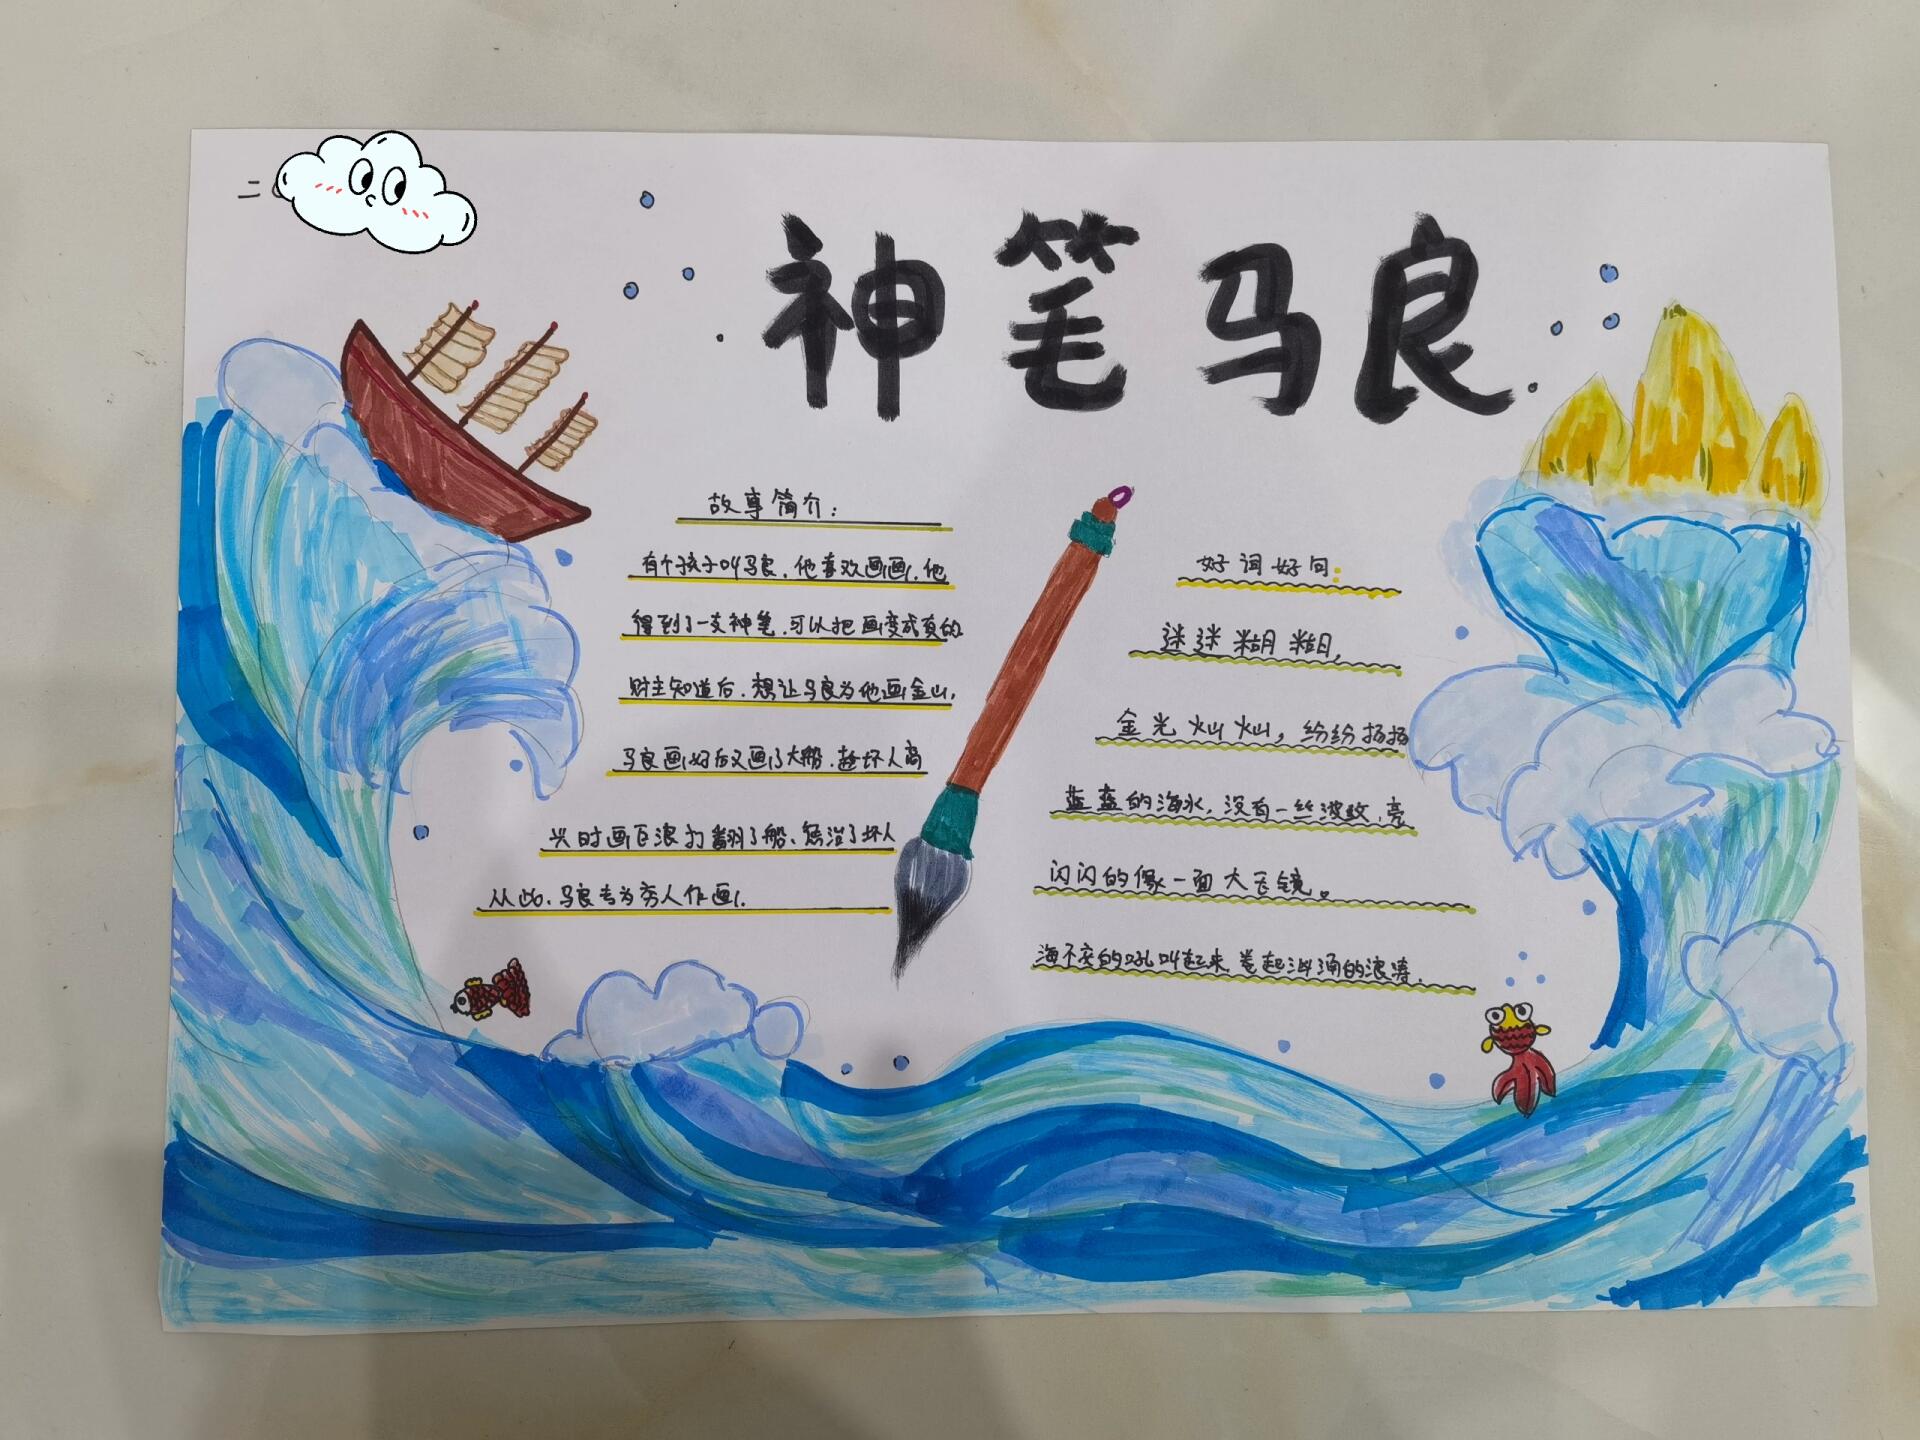 二
神笔马良
故事简介：
有个孩子叫马良，他喜欢画画，他
得到了一支神笔，可以把画变成真的
财主知道后，想让马良为他画金山，
马良画好后又画了大船，趁坏人高
兴时画巨浪打翻了船，惩治了坏人
从此，马良专为穷人作画，
好词好句：
迷迷糊糊，
金光灿灿，纷纷扬扬
蓝蓝的海水，没有一丝波纹，亮
闪闪的像一面大玉镜。
海不安的吼叫起来，卷起汹涌的浪涛，